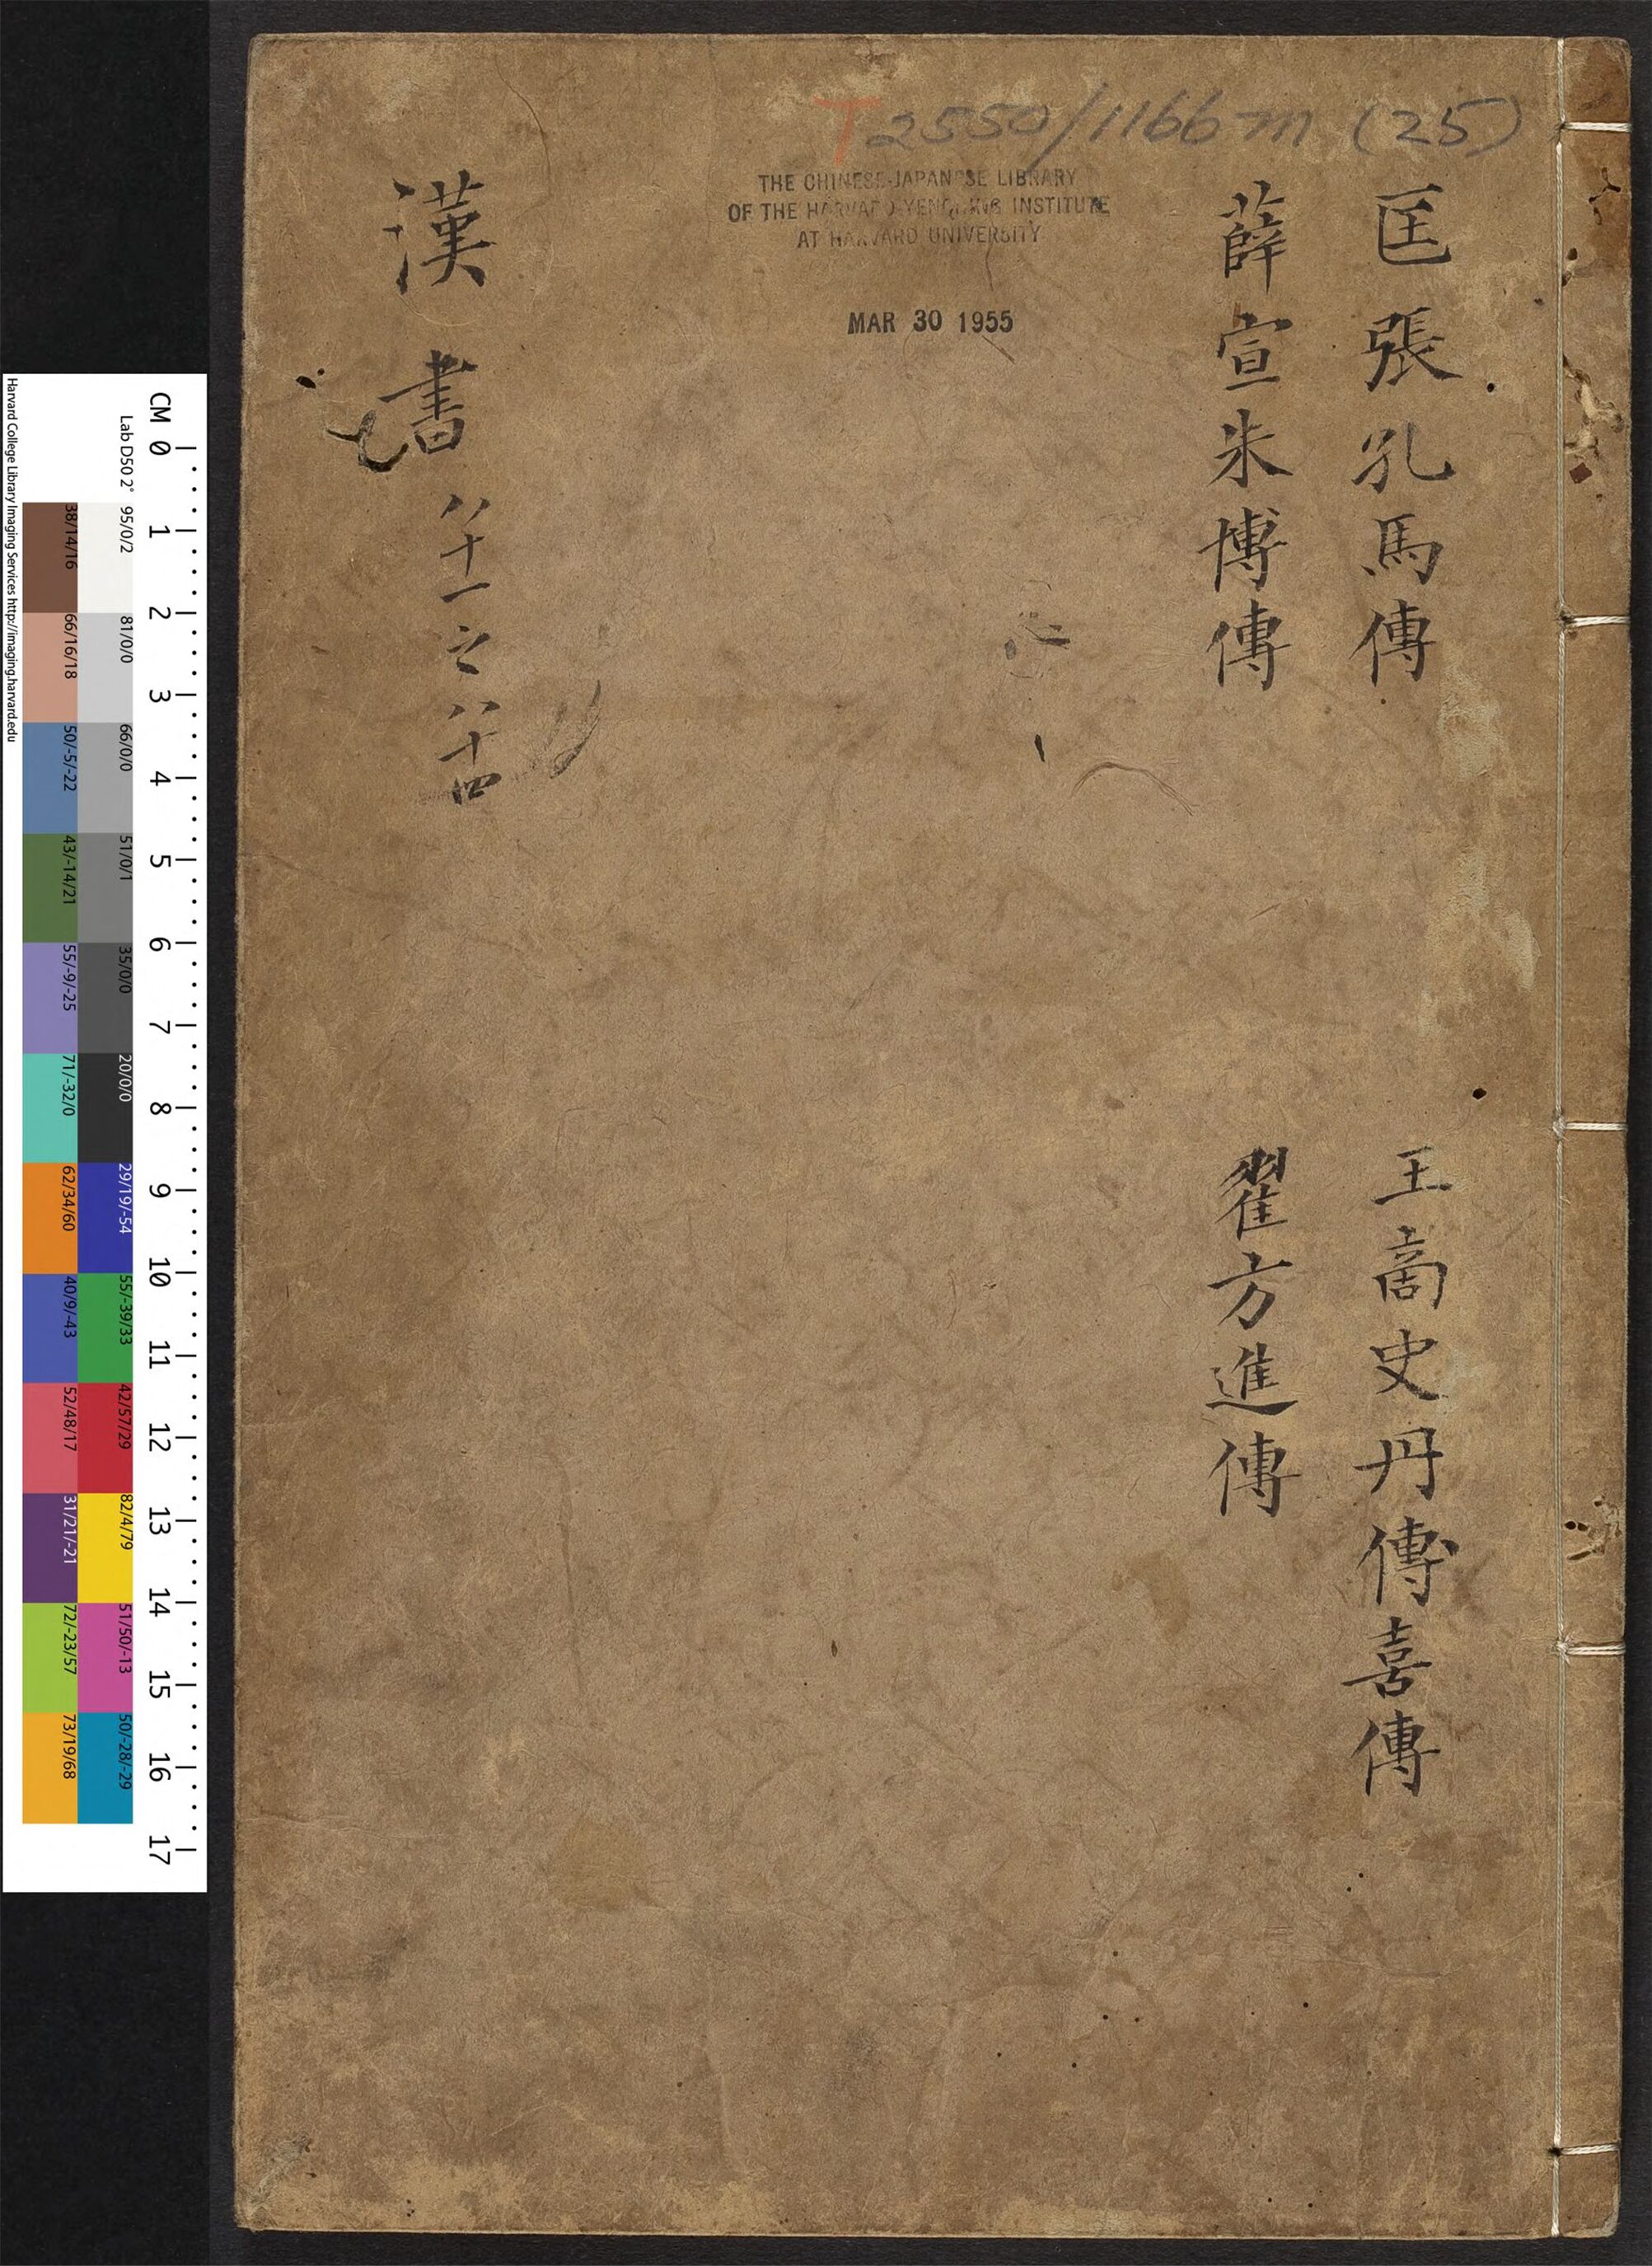 T2550/1166m (25)
THE CHINESE-JAPANESE LIBRARY
OF THE HARVARD-YENCHING INSTITUTE
AT HARVARD UNIVERSITY
MAR 30 1955
匡張孔馬傳
王啇史丹傳喜傳
薛宣朱博傳
翟方進傳
漢書 八十一之八十四
CM 0 1 2 3 4 5 6 7 8 9 10 11 12 13 14 15 16 17
Lab D50 2°
95/0/2
81/0/0
66/0/0
51/0/1
35/0/0
20/0/0
29/19/-54
55/-39/33
42/57/29
82/4/79
51/50/-13
50/-28/-29
38/14/16
66/16/18
50/-5/-22
43/-14/21
55/-9/-25
71/-32/0
62/34/60
40/9/-43
52/48/17
31/21/-21
72/-23/57
73/19/68
Harvard College Library Imaging Services http://imaging.harvard.edu